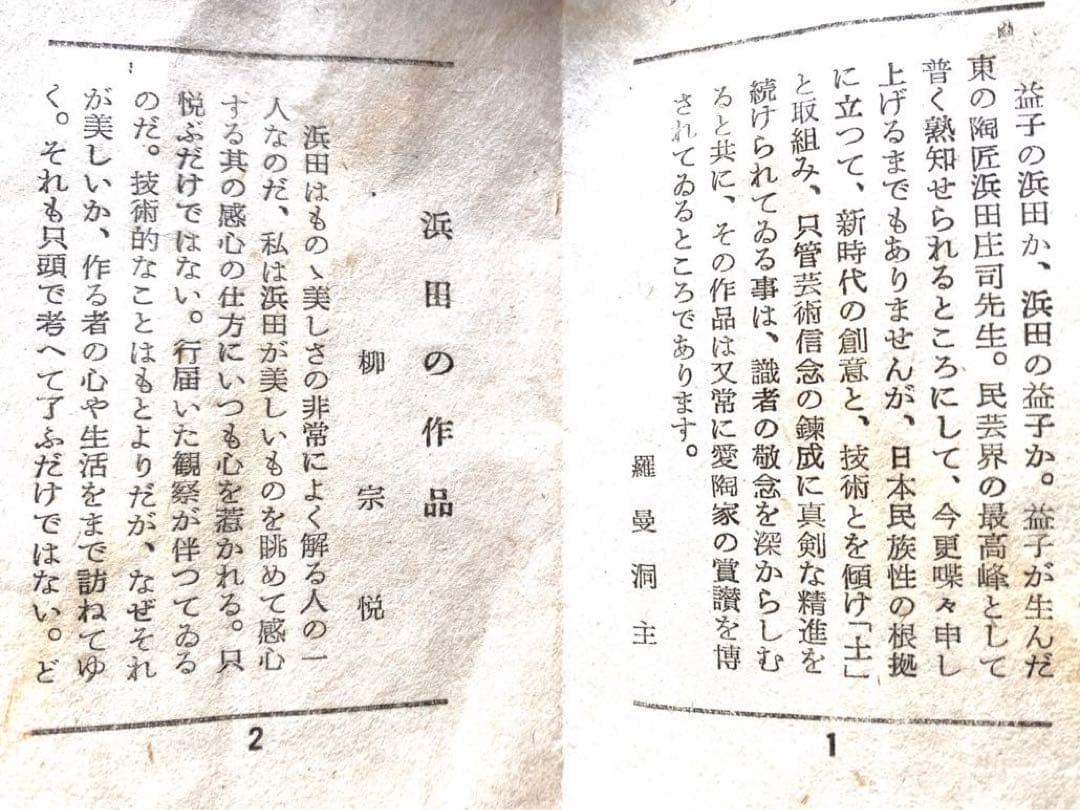 益子の浜田か、浜田の益子か。益子が生んだ
東の陶匠浜田庄司先生。民芸界の最高峰として
普く熟知せられるところにして、今更喋々申し
上げるまでもありませんが、日本民族性の根拠
に立つて、新時代の創意と、技術とを傾け「土」
と取組み、只管芸術信念の錬成に真剣な精進を
続けられてゐる事は、識者の敬念を深からしむ
ると共に、その作品は又常に愛陶家の賞讃を博
されてゐるところであります。
羅曼洞主
1
浜田の作品
柳宗悦
浜田はものゝ美しさの非常によく解る人の一
人なのだ、私は浜田が美しいものを眺めて感心
する其の感心の仕方にいつも心を惹かれる。只
悦ぶだけではない。行届いた観察が伴つてゐる
のだ。技術的なことはもとよりだが、なぜそれ
が美しいか、作る者の心や生活をまで訪ねてゆ
く。それも只頭で考へて了ふだけではない。ど
2